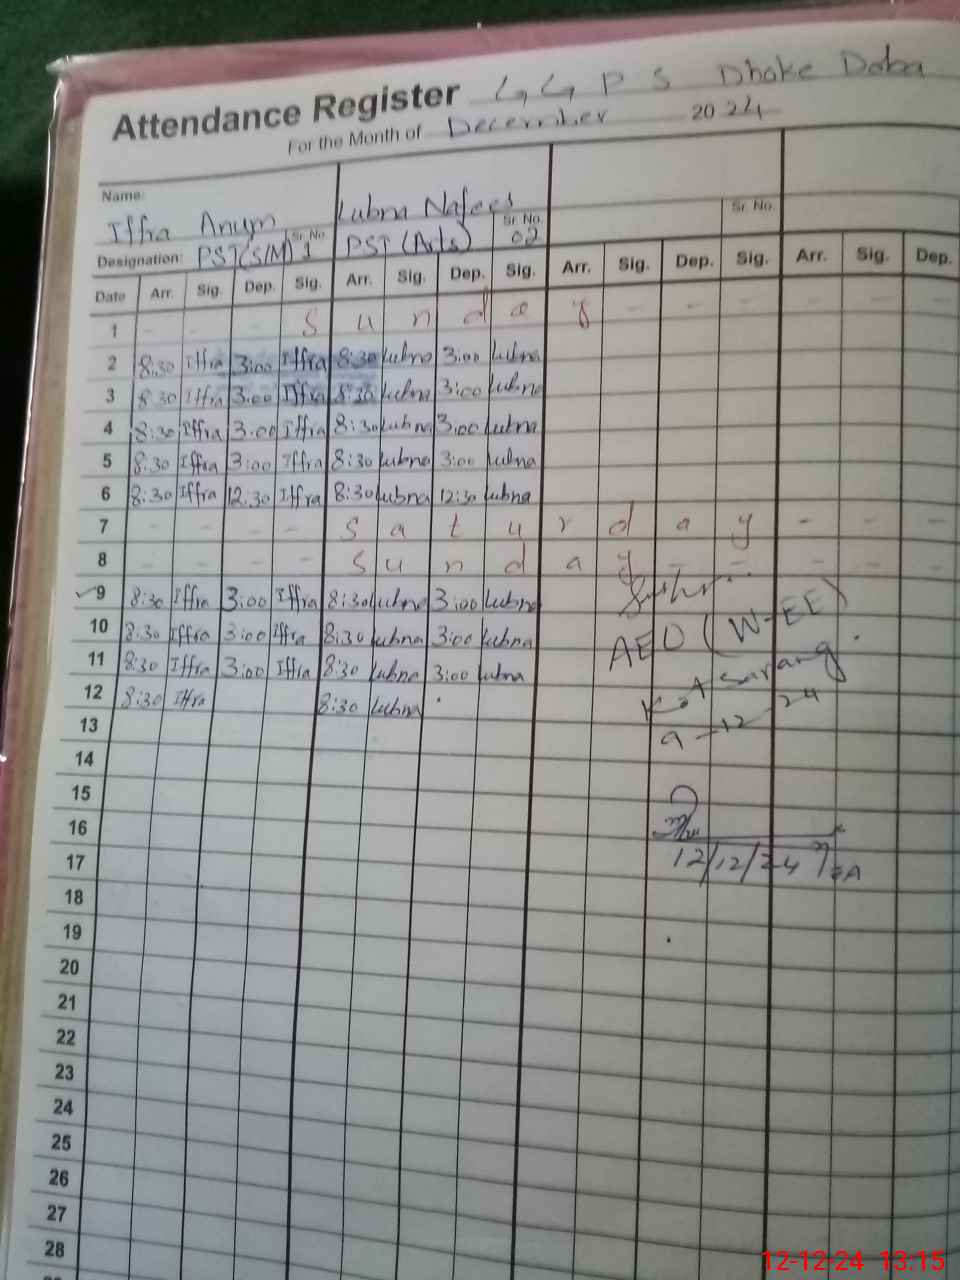 Attendance Register GGPS Dhoke Daba
For the Month of December 2024
Name: Iffra Anum Lubna Nafees
Sr. No. 1 Sr. No. 02 Sr. No.
Designation: PST(S/M) PST (Arts)
Date Arr. Sig. Dep. Sig. Arr. Sig. Dep. Sig. Arr. Sig. Dep. Sig. Arr. Sig. Dep.
1 - - - S u n d a y - - - - - -
2 8:30 Iffra 3:00 Iffra 8:30 Lubna 3:00 Lubna
3 8:30 Iffra 3:00 Iffra 8:30 Lubna 3:00 Lubna
4 8:30 Iffra 3:00 Iffra 8:30 Lubna 3:00 Lubna
5 8:30 Iffra 3:00 Iffra 8:30 Lubna 3:00 Lubna
6 8:30 Iffra 12:30 Iffra 8:30 Lubna 12:30 Lubna
7 - - - - S a t u r d a y - - -
8 - - - - S u n d a y - - - - -
9 8:30 Iffra 3:00 Iffra 8:30 Lubna 3:00 Lubna
10 8:30 Iffra 3:00 Iffra 8:30 Lubna 3:00 Lubna
AEO (W-EE)
11 8:30 Iffra 3:00 Iffra 8:30 Lubna 3:00 Lubna
Kot Sarang
12 8:30 Iffra 8:30 Lubna
9-12-24
13
14
15
16
17 12/12/24
18
19
20
21
22
23
24
25
26
27
28
12-12-24 13:15